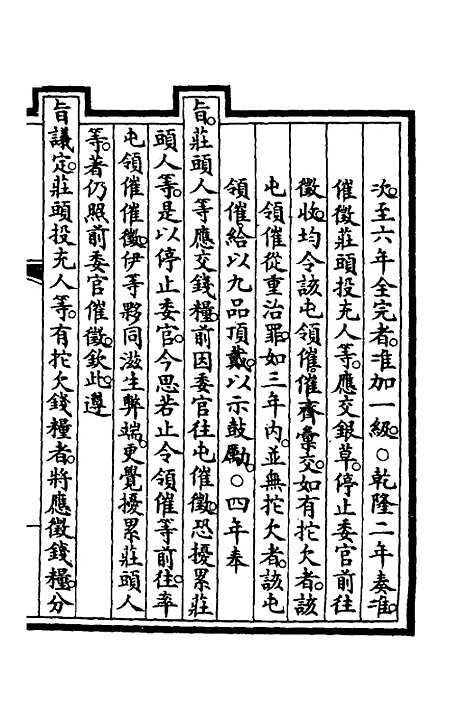 次。至六年全完者。准加一級。○乾隆二年奏准。
催徵莊頭投充人等。應交銀草。停止委官前往
徵收。均令該屯領催催齊彙交。如有拕欠者。該
屯領催從重治罪。如三年內。並無拕欠者。該屯
領催給以九品頂戴。以示鼓勵。○四年奉
旨。莊頭人等應交錢糧。前因委官往屯催徵。恐擾累莊
頭人等。是以停止委官。今思若止令領催等前往。率
屯領催催徵。伊等夥同滋生弊端。更覺擾累莊頭人
等。著仍照前委官催徵。欽此。遵
旨議定。莊頭投充人等。有拕欠錢糧者。將應徵錢糧。分